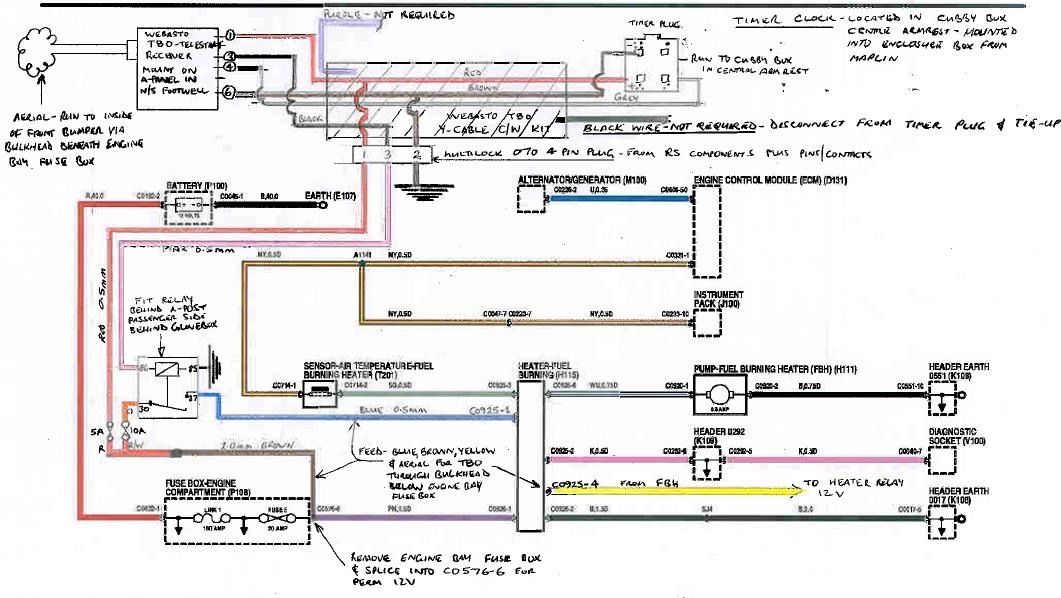 PURPLE - NOT REQUIRED
TIMER PLUG
TIMER CLOCK - LOCATED IN CUBBY BOX
CENTRE ARMREST - MOUNTED
INTO ENCLOSURE BOX FROM
MAPLIN
WEBASTO
TBO-TELESTART
RECEIVER
MOUNT ON
A-PANEL IN
N/S FOOTWELL
1
3
4
6
RUN TO CUBBY BOX
IN CENTRAL ARMREST
RED
BROWN
GREY
BLACK
WEBASTO TBO
Y-CABLE C/W KIT
BLACK WIRE - NOT REQUIRED - DISCONNECT FROM TIMER PLUG & TIE-UP
AERIAL - RUN TO INSIDE
OF FRONT BUMPER VIA
BULKHEAD BENEATH ENGINE
BAY FUSE BOX
1 3 2
MULTILOCK 070 4 PIN PLUG - FROM RS COMPONENTS PLUS PINS/CONTACTS
BATTERY (P100)
R,40.0
C0192-2
12 VOLTS
C0045-1
B,40.0
EARTH (E107)
ALTERNATOR/GENERATOR (M100)
C0226-2
U,0.35
C0606-50
ENGINE CONTROL MODULE (ECM) (D131)
PINK 0.5mm
NY,0.5D
A1141
NY,0.5D
C0331-1
RED 0.5mm
FIT RELAY
BEHIND A-POST
PASSENGER SIDE
BEHIND GLOVEBOX
INSTRUMENT
PACK (J100)
NY,0.5D
C0047-7
C0220-7
NY,0.5D
C0233-10
86
85
30
87
SENSOR-AIR TEMPERATURE-FUEL
BURNING HEATER (T201)
C0714-1
C0714-2
SG,0.5D
C0925-3
HEATER-FUEL
BURNING (H115)
C0925-6
WU,0.75D
PUMP-FUEL BURNING HEATER (FBH) (H111)
C0920-1
C0920-2
B,0.75D
C0551-10
HEADER EARTH
0551 (K108)
BLUE 0.5mm
C0925-1
5A
10A
R
R/W
1.0mm BROWN
FEED - BLUE, BROWN, YELLOW
& AERIAL FOR TBO
THROUGH BULKHEAD
BELOW ENGINE BAY
FUSE BOX
HEADER 0292
(K109)
C0925-2
K,0.5D
C0292-6
C0292-5
K,0.5D
C0040-7
DIAGNOSTIC
SOCKET (V100)
C0925-4 FROM FBH
TO HEATER RELAY
12V
FUSE BOX-ENGINE
COMPARTMENT (P108)
C0632-1
LINK 1
150 AMP
FUSE 5
20 AMP
C0576-6
PN,1.5D
C0926-1
C0926-2
B,1.5D
SJ4
B,2.0
C0017-5
HEADER EARTH
0017 (K108)
REMOVE ENGINE BAY FUSE BOX
& SPLICE INTO C0576-6 FOR
PERM 12V